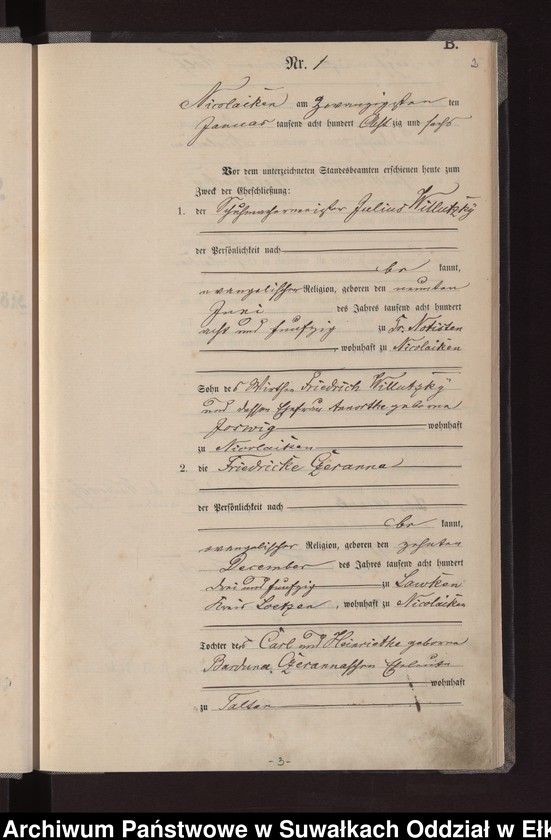 B.
2
Nr. 1
Nicolaiken am Zwanzigsten ten
Januar tausend acht hundert Achtzig und sechs
Vor dem unterzeichneten Standesbeamten erschienen heute zum
Zweck der Eheschließung:
1. der Schuhmachermeister Julius Willutzky
der Persönlichkeit nach
be kannt,
evangelischer Religion, geboren den neunten
Juni des Jahres tausend acht hundert
acht und funfzig zu Dr. Notisten
, wohnhaft zu Nicolaiken
Sohn des Wirthen Friedrich Willutzky
und dessen Ehefrau geborne
wohnhaft
zu Nicolaiken
2. die Friedricke Czeranna
der Persönlichkeit nach
be kannt,
evangelischer Religion, geboren den zehnten
December des Jahres tausend acht hundert
drei und funfzig zu Lawken
Kreis Loetzen, wohnhaft zu Nicolaiken
Tochter des Carl und Heinriethe geborne
Czerannaschen Eheleute
wohnhaft
zu Talten
-3-
Archiwum Państwowe w Suwałkach Oddział w Ełk